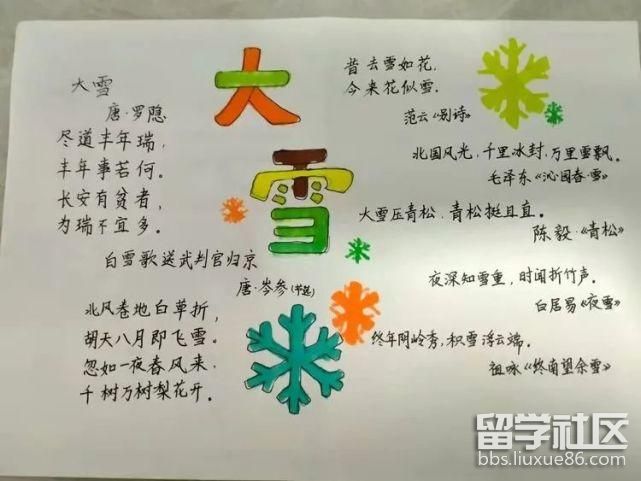 大雪
大雪
唐·罗隐
尽道丰年瑞,
丰年事若何。
长安有贫者,
为瑞不宜多。
白雪歌送武判官归京
唐·岑参(节选)
北风卷地白草折,
胡天八月即飞雪。
忽如一夜春风来,
千树万树梨花开。
昔去雪如花,
今来花似雪.
范云《别诗》
北国风光,千里冰封,万里雪飘。
毛泽东《沁园春·雪》
大雪压青松,青松挺且直。
陈毅·《青松》
夜深知雪重,时闻折竹声。
白居易《夜雪》
终年阴岭秀,积雪浮云端。
祖咏《终南望余雪》
留学社区
bbs.liuxue86.com